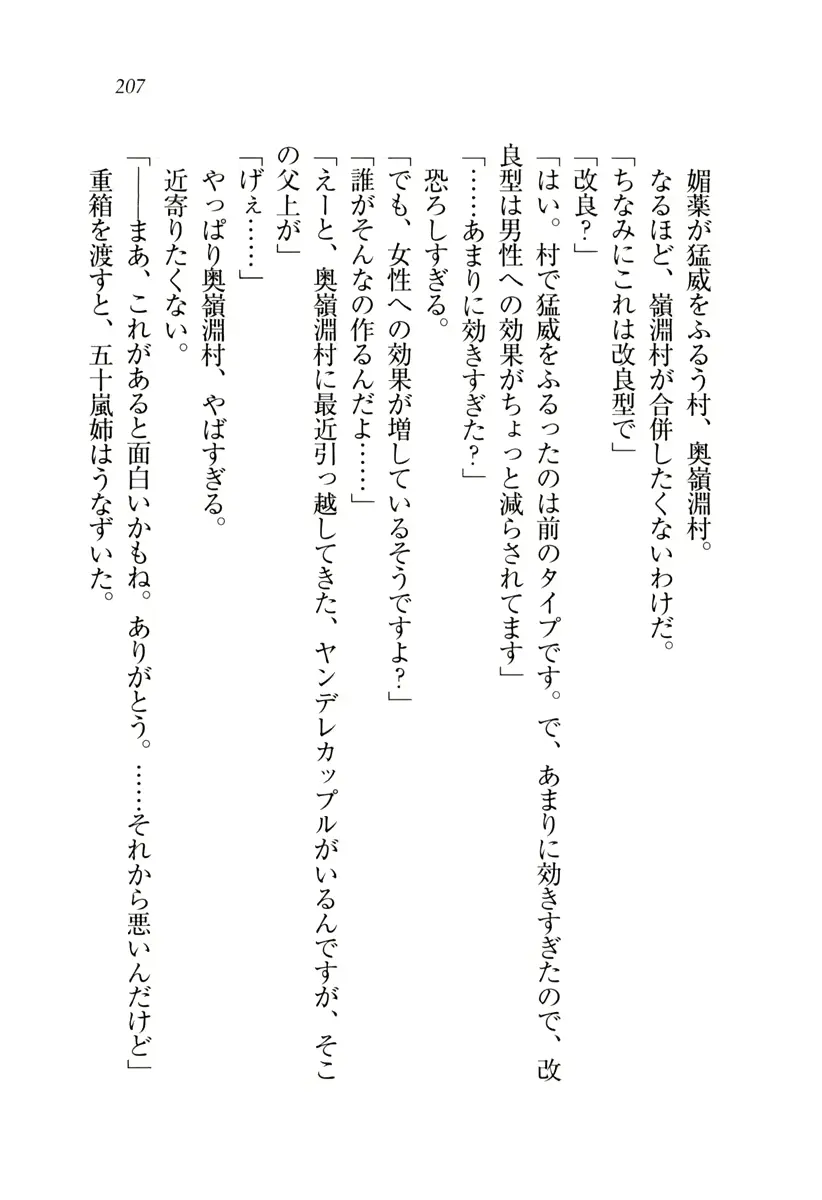 207
媚薬が猛威をふるう村、奥嶺淵村。
なるほど、嶺淵村が合併したくないわけだ。
「ちなみにこれは改良型で」
「改良?」
「はい。村で猛威をふるったのは前のタイプです。で、あまりに効きすぎたので、改
良型は男性への効果がちょっと減らされてます」
「……あまりに効きすぎた?」
恐ろしすぎる。
「でも、女性への効果が増しているそうですよ?」
「誰がそんなの作るんだよ……」
「えーと、奥嶺淵村に最近引っ越してきた、ヤンデレカップルがいるんですが、そこ
の父上が」
「げぇ……」
やっぱり奥嶺淵村、やばすぎる。
近寄りたくない。
「――まあ、これがあると面白いかもね。ありがとう。……それから悪いんだけど」
重箱を渡すと、五十嵐姉はうなずいた。